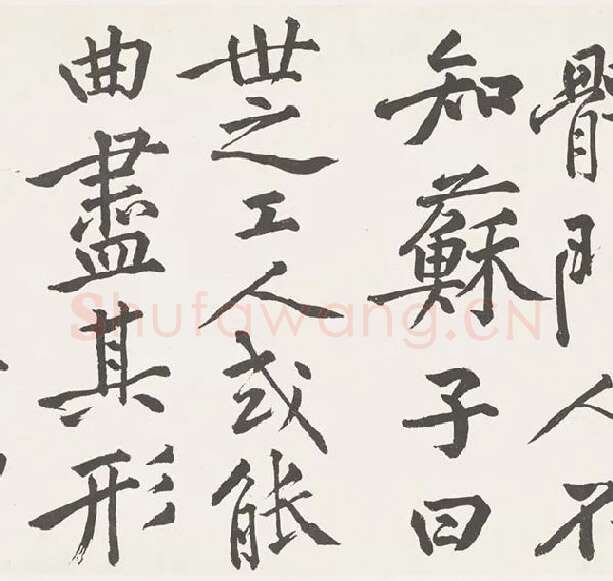 門人不
知蘇子曰
世之工人或能
曲盡其形
Shufawang.CN